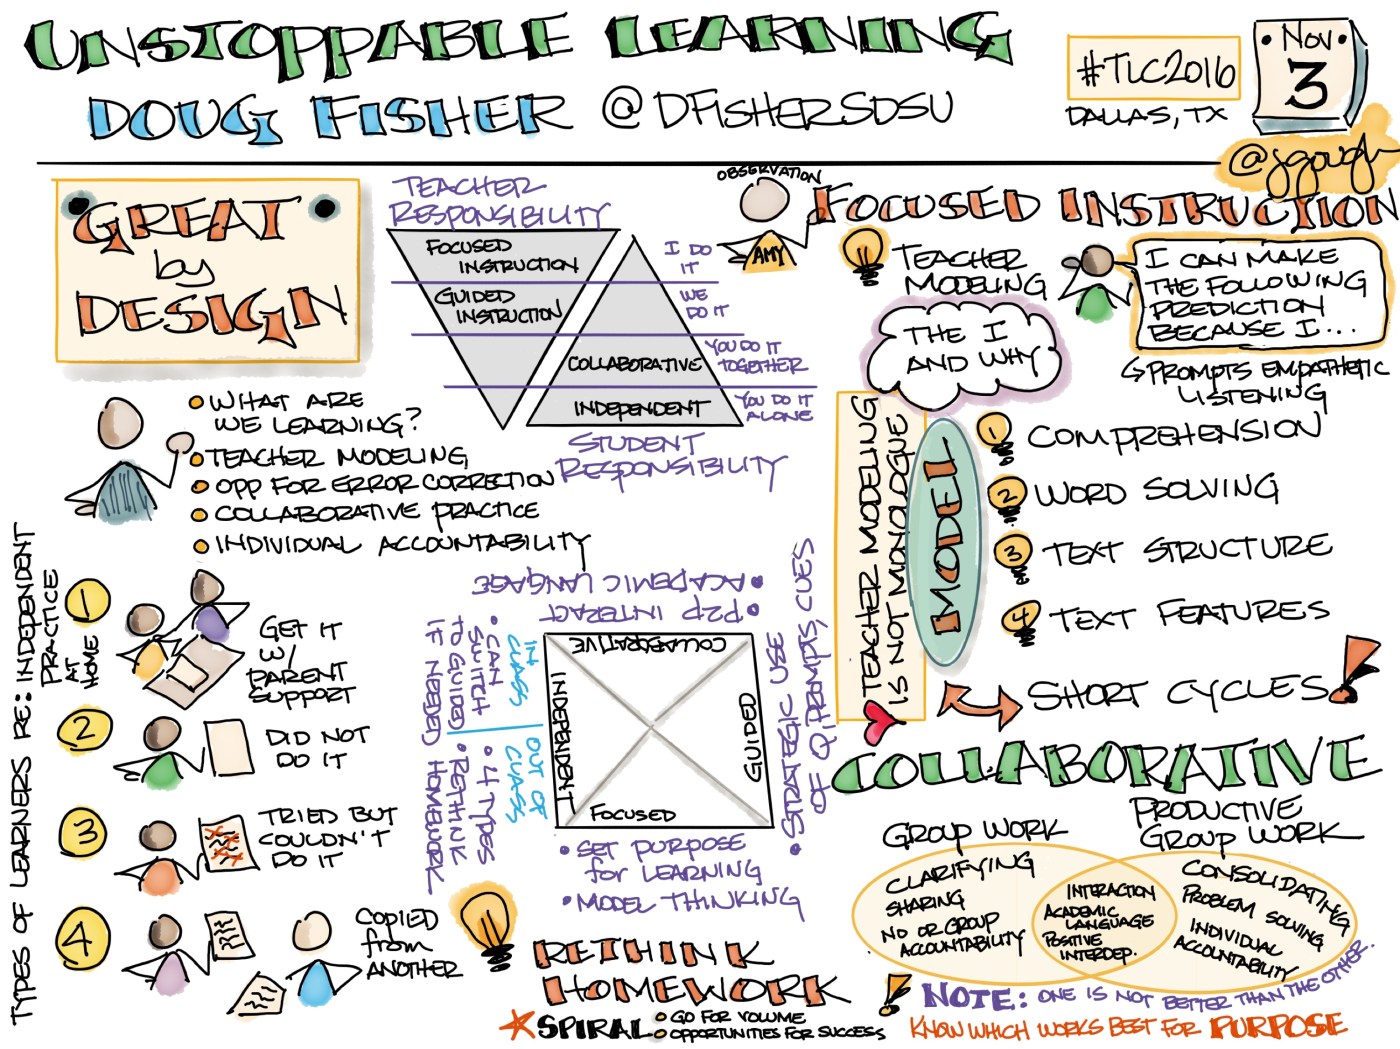 UNSTOPPABLE LEARNING
DOUG FISHER @DFISHERSDSU
#TLC2016
DALLAS, TX
NOV
3
@jgough
GREAT
by
DESIGN
WHAT ARE
WE LEARNING?
TEACHER MODELING
OPP FOR ERROR CORRECTION
COLLABORATIVE PRACTICE
INDIVIDUAL ACCOUNTABILITY
TEACHER
RESPONSIBILITY
FOCUSED
INSTRUCTION
GUIDED
INSTRUCTION
COLLABORATIVE
INDEPENDENT
I DO
IT
WE
DO IT
YOU DO IT
TOGETHER
YOU DO IT
ALONE
STUDENT
RESPONSIBILITY
OBSERVATION
AMY
FOCUSED INSTRUCTION
TEACHER
MODELING
I CAN MAKE
THE FOLLOWING
PREDICTION
BECAUSE I...
PROMPTS EMPATHETIC
LISTENING
THE I
AND WHY
TEACHER MODELING
IS NOT MONOLOGUE
MODEL
1 COMPREHENSION
2 WORD SOLVING
3 TEXT STRUCTURE
4 TEXT FEATURES
SHORT CYCLES!
TYPES OF LEARNERS RE: INDEPENDENT
PRACTICE
AT
HOME
1
GET IT
W/
PARENT
SUPPORT
2
DID NOT
DO IT
3
TRIED BUT
COULDN'T
DO IT
4
COPIED
from
ANOTHER
• ACADEMIC LANGAGE
• P2P INTERACT
COLLABORATIVE
INDEPENDENT
GUIDED
FOCUSED
IN
CLASS
OUT OF
CLASS
• CAN
SWITCH
TO GUIDED
IF NEEDED
• 4 TYPES
• RETHINK
HOMEWORK
• STRATEGIC USE
OF Q, PROMPTS, CUES
• SET PURPOSE
for LEARNING
• MODEL THINKING
RETHINK
HOMEWORK
SPIRAL
GO FOR VOLUME
OPPORTUNITIES FOR SUCCESS
COLLABORATIVE
GROUP WORK
PRODUCTIVE
GROUP WORK
CLARIFYING
SHARING
NO OR GROUP
ACCOUNTABILITY
INTERACTION
ACADEMIC
LANGUAGE
POSITIVE
INTERDEP.
CONSOLIDATING
PROBLEM SOLVING
INDIVIDUAL
ACCOUNTABILITY
! NOTE: ONE IS NOT BETTER THAN THE OTHER.
KNOW WHICH WORKS BEST FOR PURPOSE